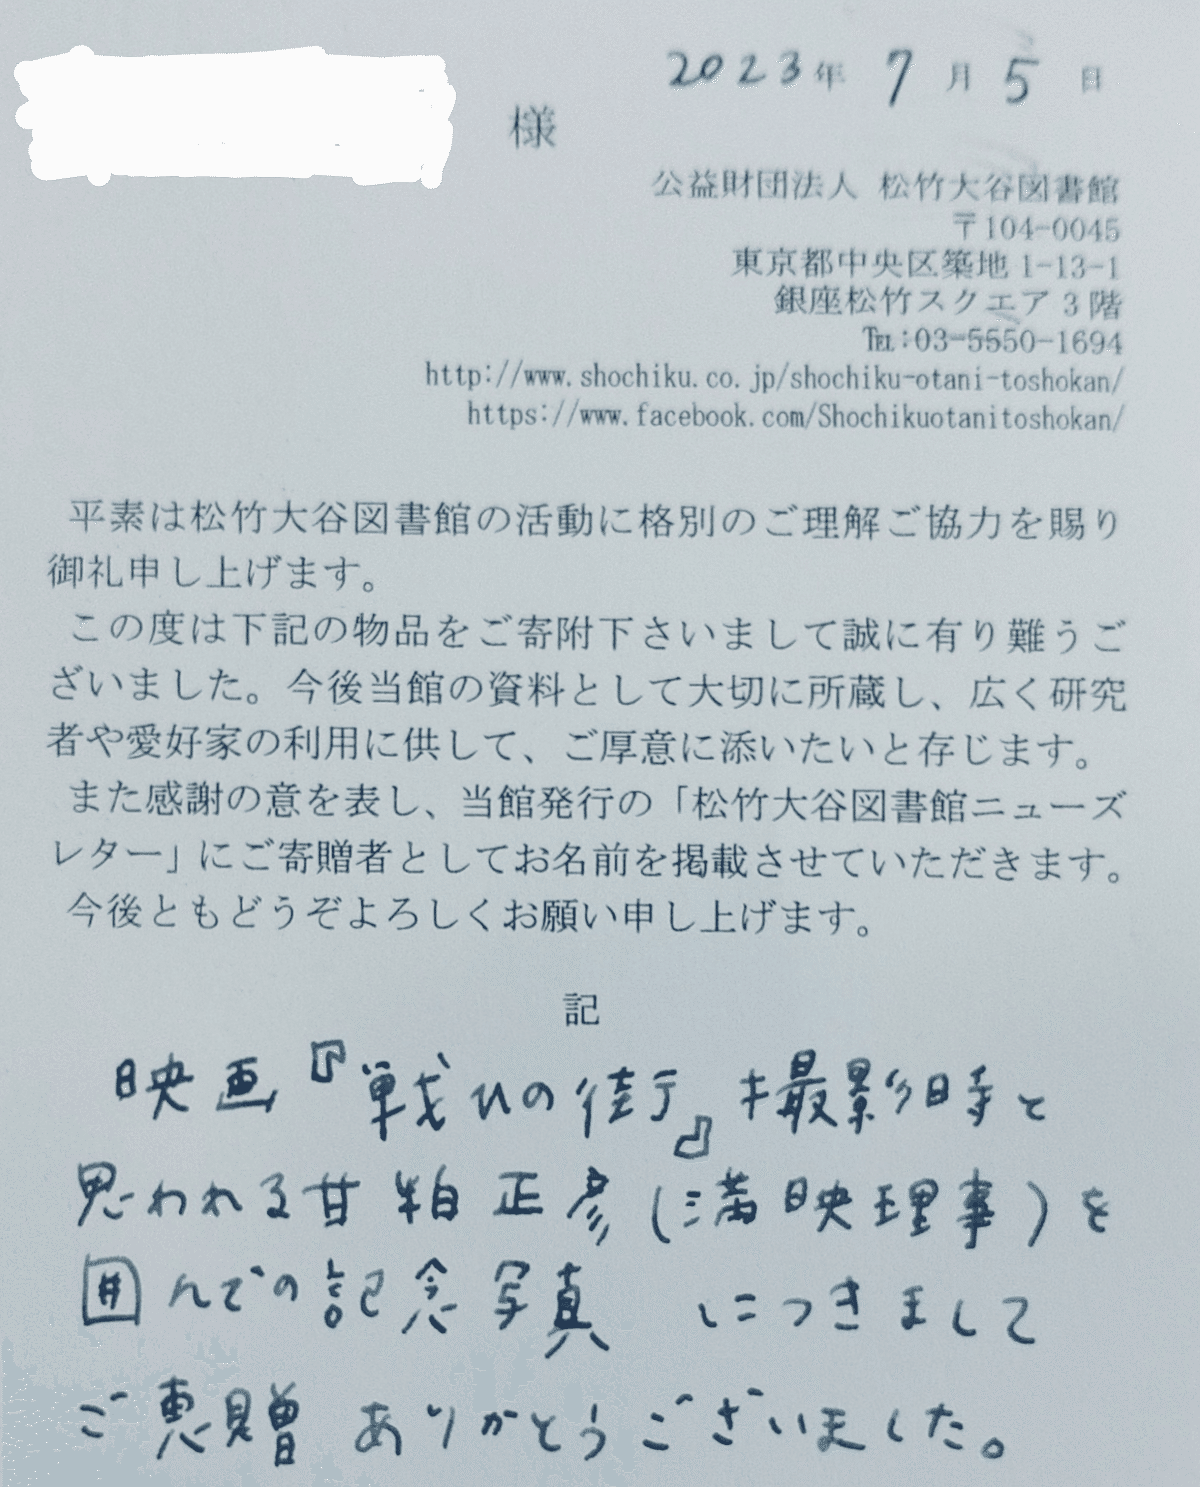 2023年 7月 5日
様
公益財団法人 松竹大谷図書館
〒104-0045
東京都中央区築地1-13-1
銀座松竹スクエア3階
℡:03-5550-1694
http://www.shochiku.co.jp/shochiku-otani-toshokan/
https://www.facebook.com/Shochikuotanitoshokan/
平素は松竹大谷図書館の活動に格別のご理解ご協力を賜り
御礼申し上げます。
この度は下記の物品をご寄附下さいまして誠に有り難うご
ざいました。今後当館の資料として大切に所蔵し、広く研究
者や愛好家の利用に供して、ご厚意に添いたいと存じます。
また感謝の意を表し、当館発行の「松竹大谷図書館ニューズ
レター」にご寄贈者としてお名前を掲載させていただきます。
今後ともどうぞよろしくお願い申し上げます。
記
映画『戦ひの街』撮影時と
思われる甘粕正彦(満映理事)を
囲んでの記念写真 につきまして
ご恵贈ありがとうございました。